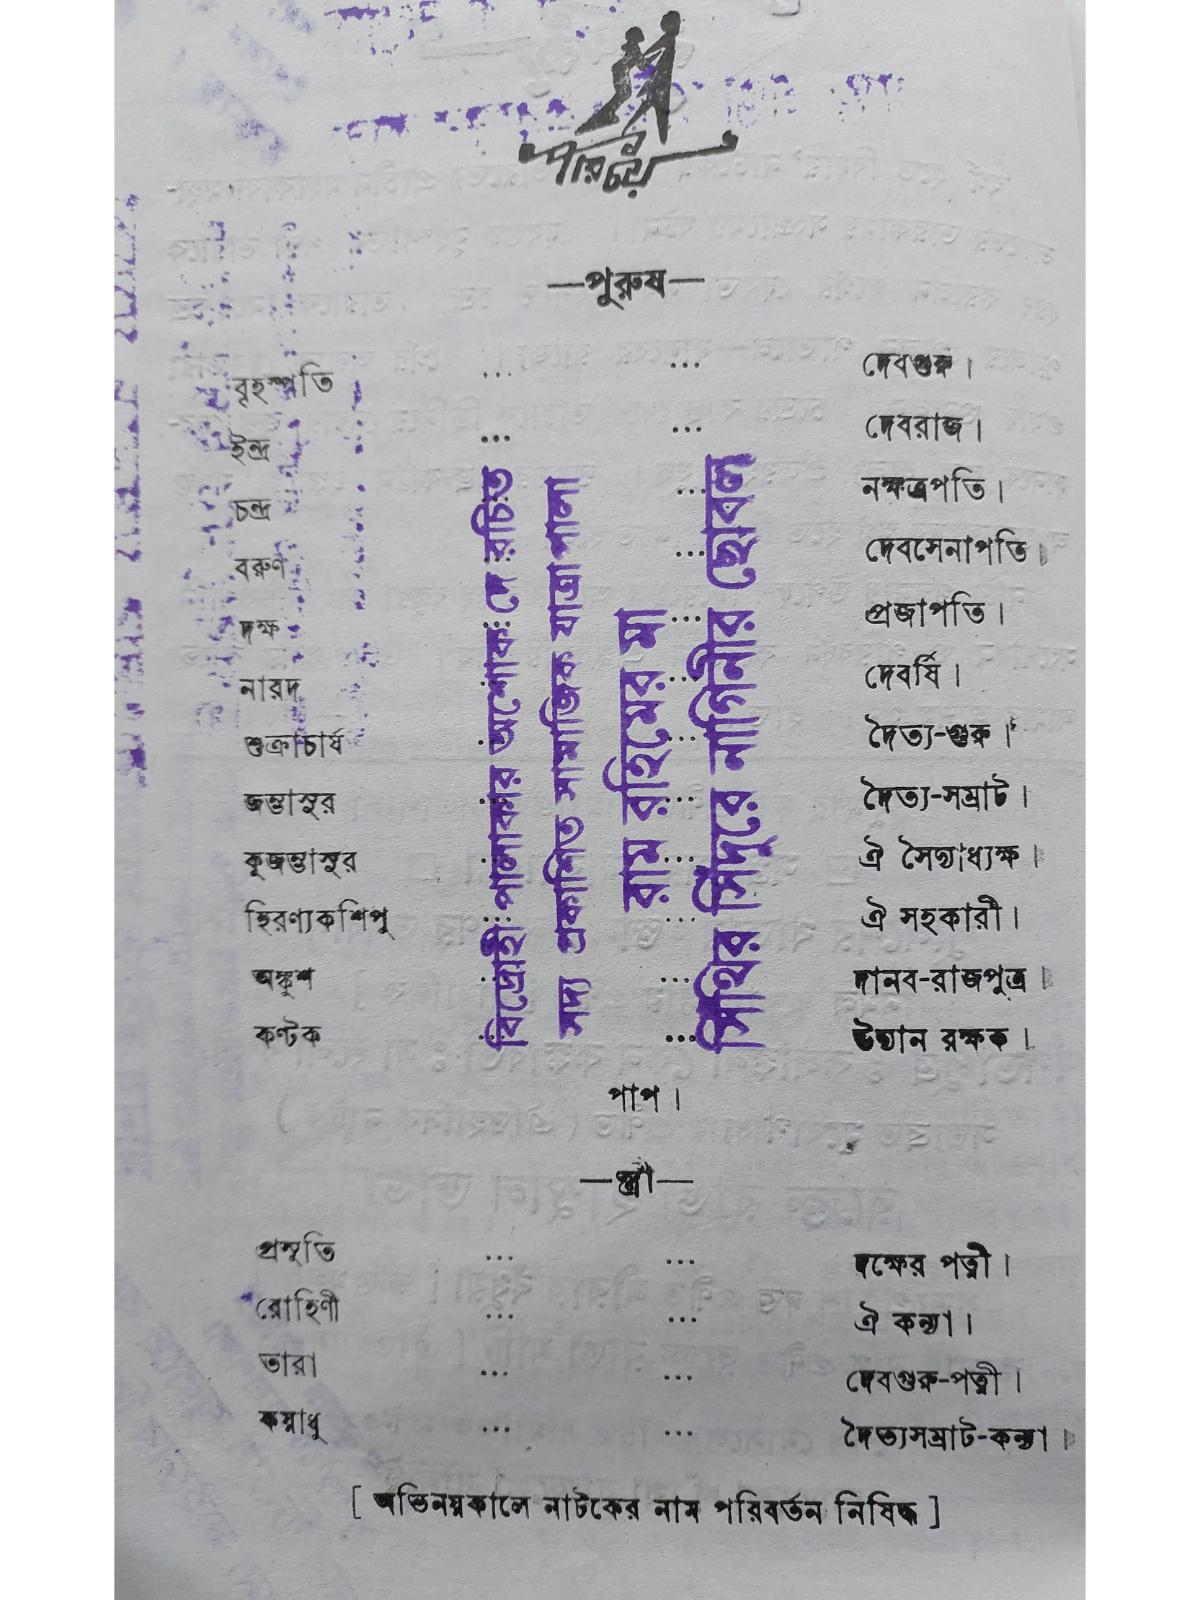 পরিচয়
—পুরুষ—
বৃহস্পতি ... ... দেবগুরু।
ইন্দ্র ... ... দেবরাজ।
চন্দ্র ... নক্ষত্রপতি।
বরুণ ... দেবসেনাপতি।
দক্ষ ... প্রজাপতি।
নারদ ... দেবর্ষি।
শুক্রাচার্য ... দৈত্য-গুরু।
জম্ভাসুর ... দৈত্য-সম্রাট।
কুজম্ভাসুর ... ঐ সৈন্যাধ্যক্ষ।
হিরণ্যকশিপু ... ঐ সহকারী।
অঙ্কুশ ... দানব-রাজপুত্র।
কণ্টক ... উদ্যান রক্ষক।
পাপ।
বিদ্রোহী পালাকার অশোক দে রচিত
সদ্য প্রকাশিত সামাজিক যাত্রাপালা
রাম রহিমের মা
সিঁথির সিঁদুরে নাগিনীর ছোবল
—স্ত্রী—
প্রসূতি ... ... দক্ষের পত্নী।
রোহিণী ... ... ঐ কন্যা।
তারা ... ... দেবগুরু-পত্নী।
কয়াধু ... ... দৈত্যসম্রাট-কন্যা।
[ অভিনয়কালে নাটকের নাম পরিবর্তন নিষিদ্ধ ]